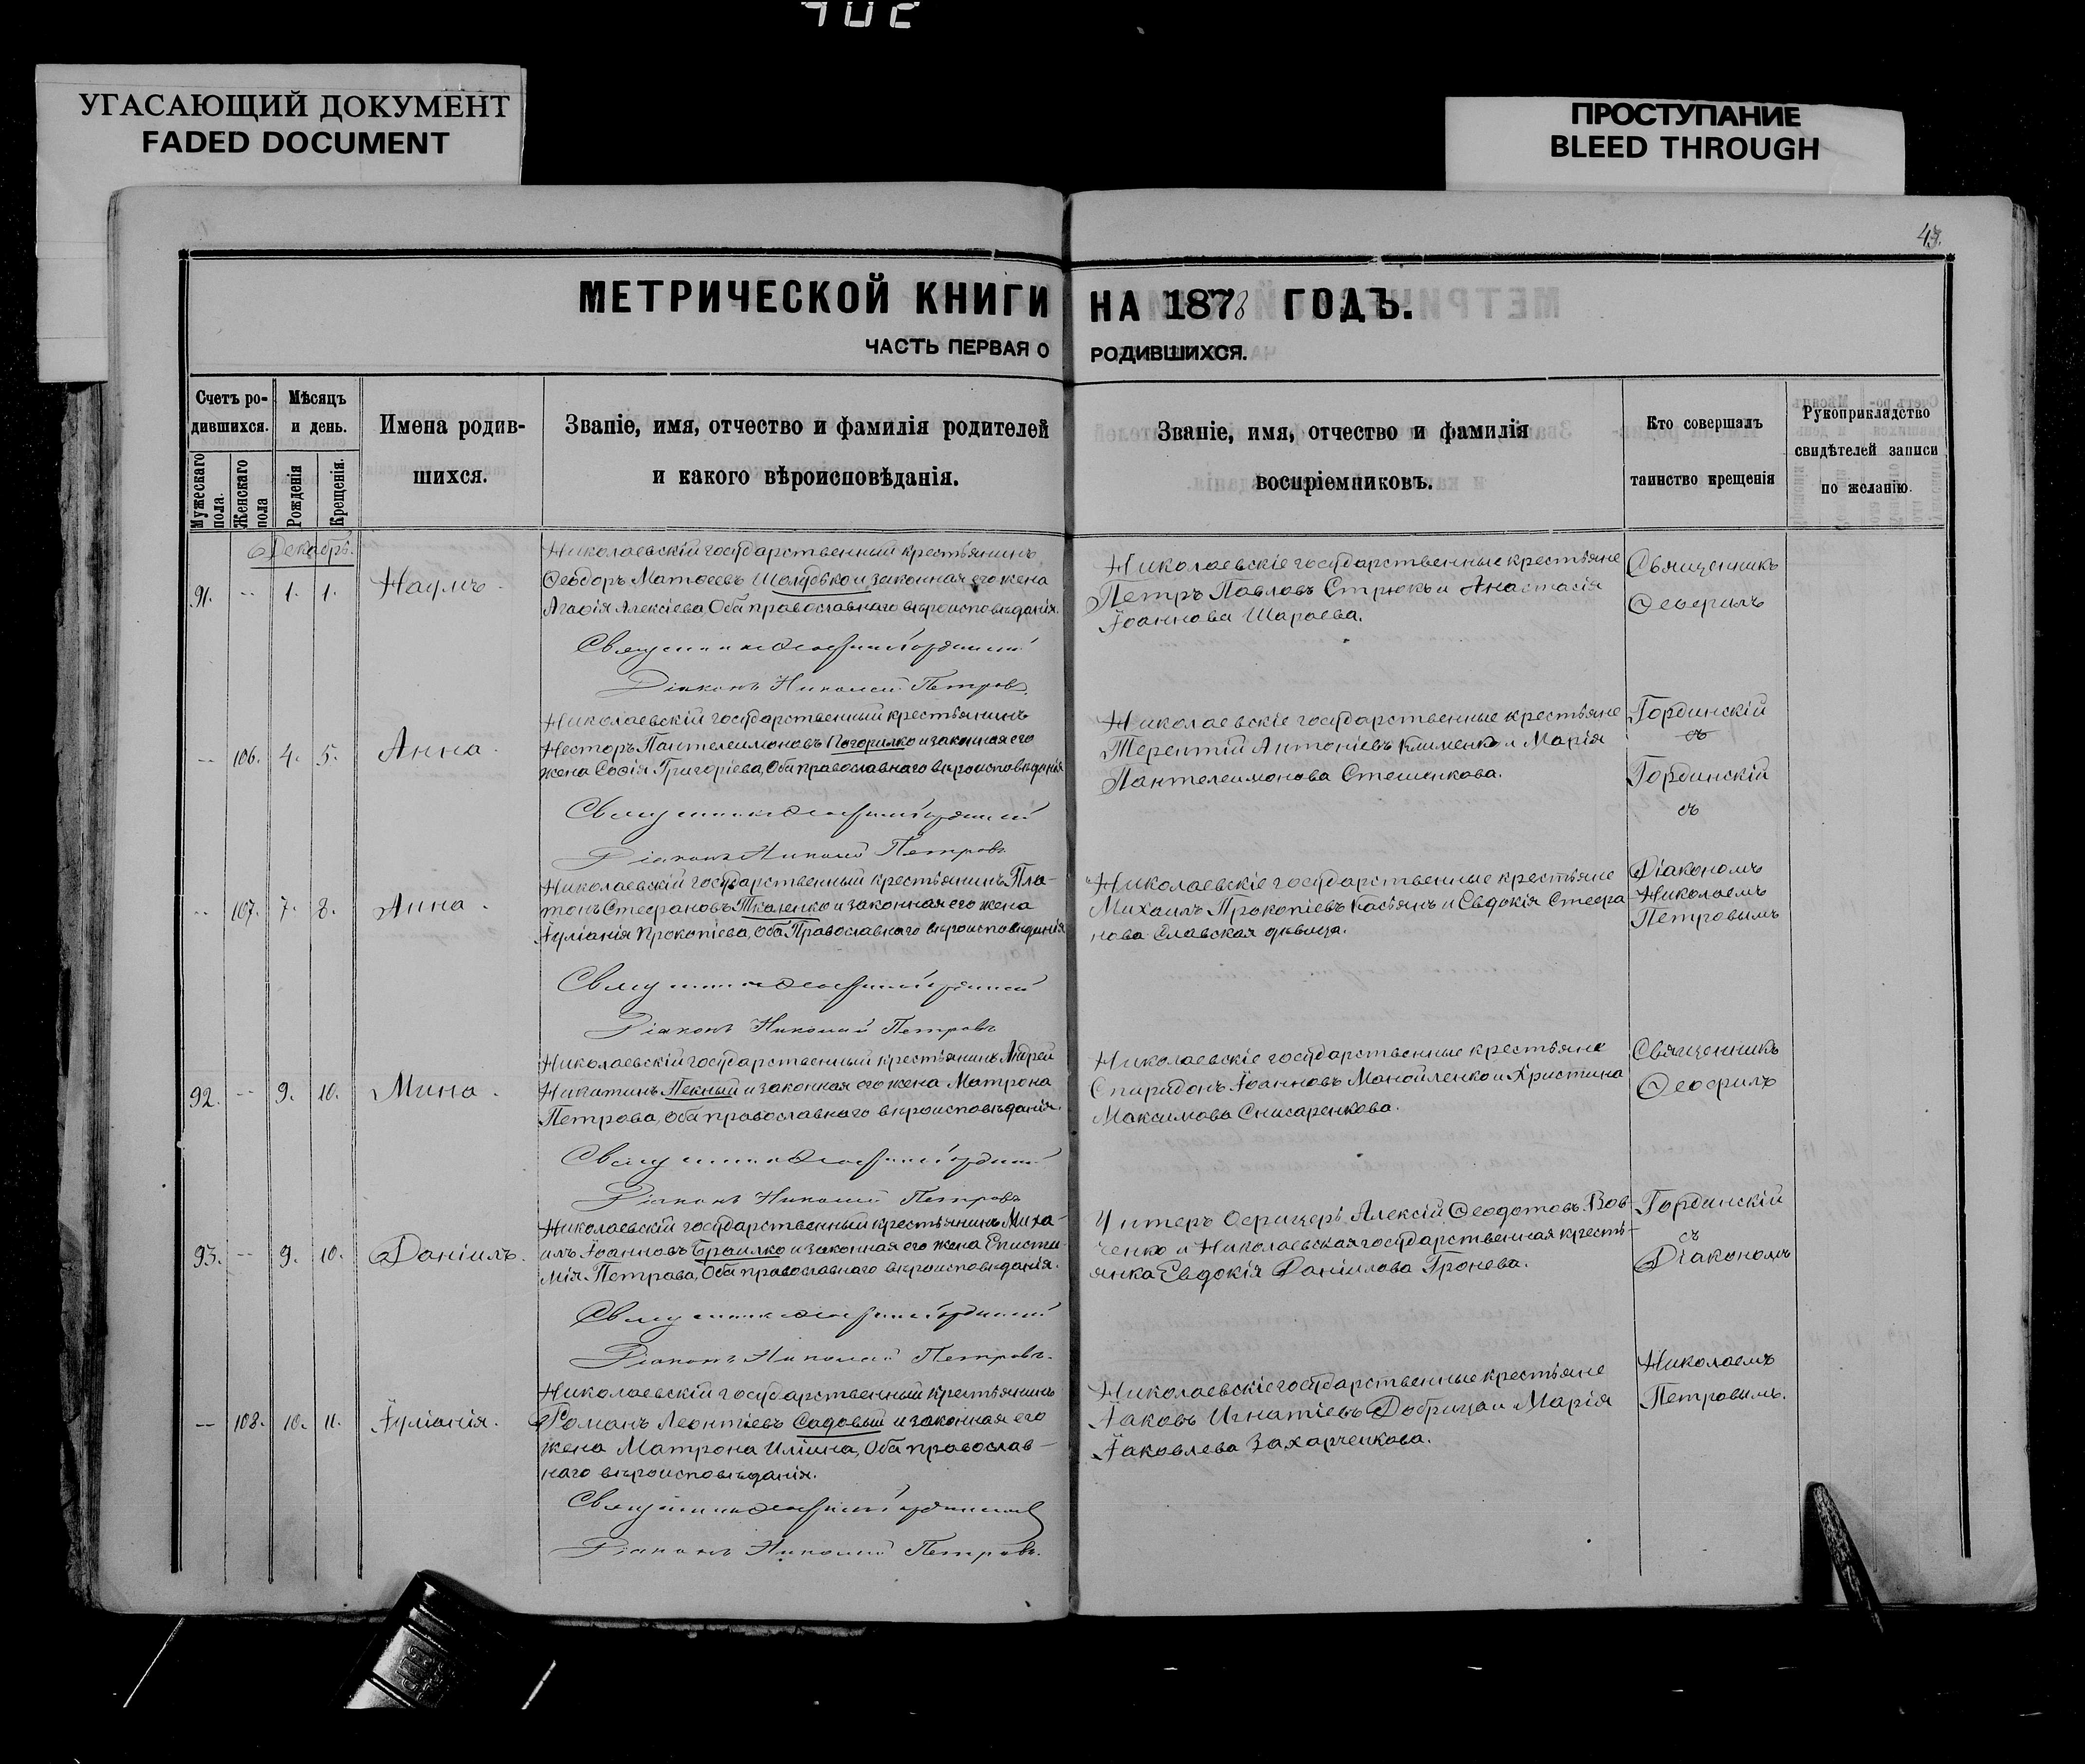 УГАСАЮЩИЙ ДОКУМЕНТ
FADED DOCUMENT
ПРОСТУПАНИЕ
BLEED THROUGH
МЕТРИЧЕСКОЙ КНИГИ НА 1878 ГОДЪ.
ЧАСТЬ ПЕРВАЯ О РОДИВШИХСЯ.
Счетъ ро-
дившихся.
Мужескаго пола.
Женскаго пола
Мѣсяцъ
и день.
Рожденія
Крещенія.
Имена родив-
шихся.
Званіе, имя, отчество и фамилія родителей
и какого вѣроисповѣданія.
Званіе, имя, отчество и фамилія
воспріемниковъ.
Кто совершалъ
таинство крещенія
Рукоприкладство
свидѣтелей записи
по желанію.
Декабрь.
91. -- 1. 1. Наумъ.
Николаевскій государственный крестьянинъ
Ѳеодоръ Матѳеевъ и законная его жена
Агафія Алексіева, Оба православнаго вѣроисповѣданія.
Николаевскіе государственные крестьяне
Петръ Павловъ Стрюкъ и Анастасія
Іоаннова Шараева.
Священникъ
Ѳеофилъ
Діаконъ Николай Петровъ.
-- 106. 4. 5. Анна.
Николаевскій государственный крестьянинъ
Несторъ Пантелеимоновъ Погорилко и законная его
жена Софія Григоріева, Оба православнаго вѣроисповѣданія
Николаевскіе государственные крестьяне
Терентій Антоніевъ Клименко и Марія
Пантелеимонова Стешенкова.
Гординскій
съ
Гординскій
съ
Діаконъ Николай Петровъ
-- 107. 7. 8. Анна.
Николаевскій государственный крестьянинъ Пла-
тонъ Стефановъ Ткаченко и законная его жена
Іуліанія Прокопіева, Оба Православнаго вѣроисповѣданія
Николаевскіе государственные крестьяне
Михаилъ Прокопіевъ Касьянъ и Евдокія Стефа
нова Славская дѣвица.
Діакономъ
Николаемъ
Петровымъ
Діаконъ Николай Петровъ
92. -- 9. 10. Мина.
Николаевскій государственный крестьянинъ Андрей
Никитинъ Певный и законная его жена Матрона
Петрова, Оба православнаго вѣроисповѣданія.
Николаевскіе государственные крестьяне
Спиридонъ Іоанновъ Манойленко и Христина
Максимова Снисаренкова.
Священникъ
Ѳеофилъ
Діаконъ Николай Петровъ
93. -- 9. 10. Даніилъ.
Николаевскій государственный крестьянинъ Миха-
илъ Іоанновъ Браилко и законная его жена Еписти-
мія Петрова, Оба православнаго вѣроисповѣданія.
Унтеръ Офицеръ Алексій Ѳеодотовъ Вов-
ченко и Николаевская государственная кресть-
янка Евдокія Даніилова Гронева.
Гординскій
съ
Діакономъ
Діаконъ Николай Петровъ.
-- 108. 10. 11. Іуліанія.
Николаевскій государственный крестьянинъ
Романъ Леонтіевъ Садовый и законная его
жена Матрона Иліина, Оба православ-
наго вѣроисповѣданія.
Николаевскіе государственные крестьяне
Іаковъ Игнатіевъ Добрица и Марія
Іаковлева Захарченкова.
Николаемъ
Петровымъ.
Діаконъ Николай Петровъ.